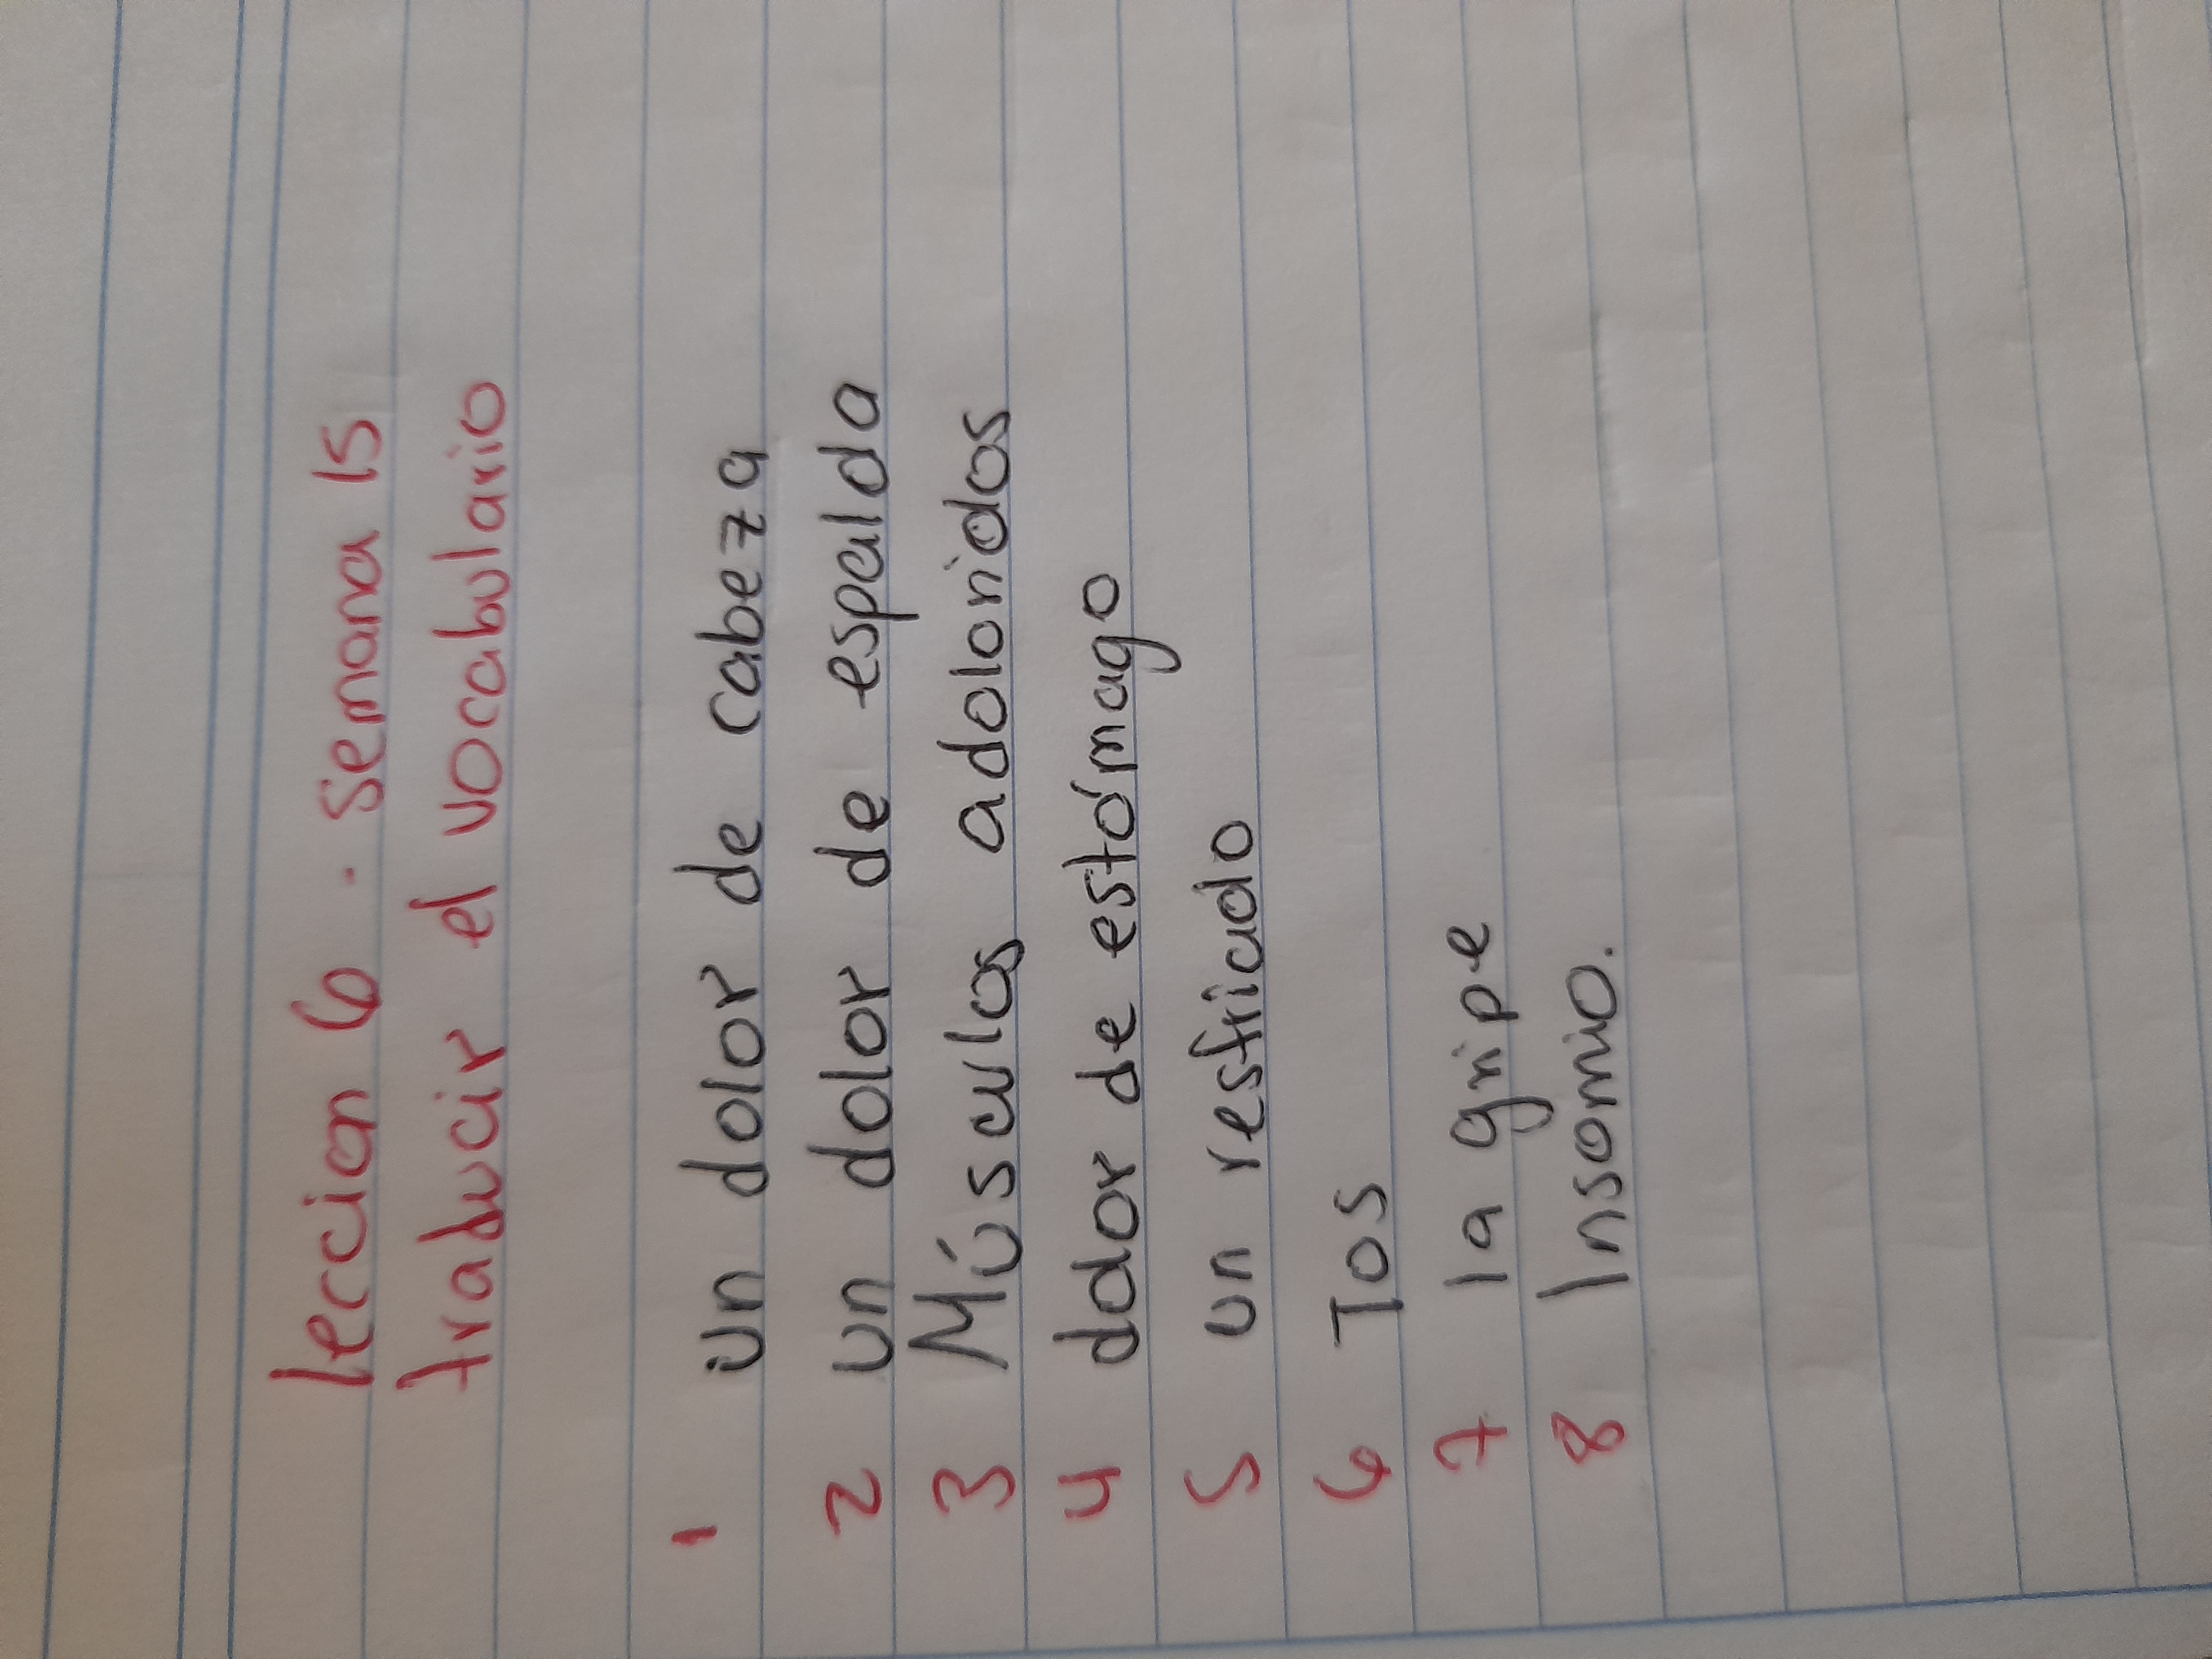 leccion 6 . semana 15
traducir el vocabulario
1 un dolor de cabeza
2 un dolor de espalda
3 Músculos adoloridos
4 dolor de estómago
5 un resfriado
6 Tos
7 la gripe
8 Insomnio.